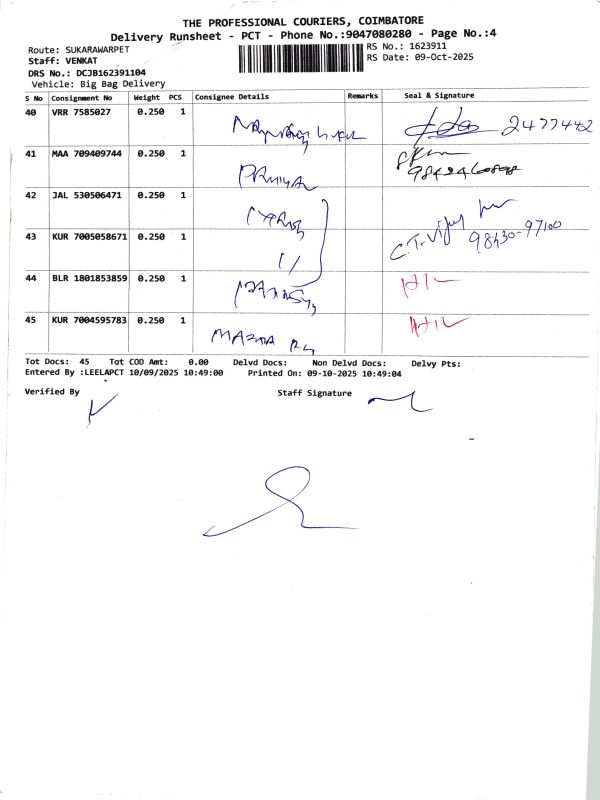 THE PROFESSIONAL COURIERS, COIMBATORE
Delivery Runsheet - PCT - Phone No.:9047080280 - Page No.:4
Route: SUKARAWARPET
RS No.: 1623911
Staff: VENKAT
RS Date: 09-Oct-2025
DRS No.: DCJB162391104
Vehicle: Big Bag Delivery
S No Consignment No Weight PCS Consignee Details Remarks Seal & Signature
40 VRR 7585027 0.250 1 2477442
41 MAA 709409744 0.250 1
42 JAL 530506471 0.250 1
43 KUR 7005058671 0.250 1 C.T. Vijay 98430-97100
44 BLR 1801853859 0.250 1
45 KUR 7004595783 0.250 1
Tot Docs: 45 Tot COD Amt: 0.00 Delvd Docs: Non Delvd Docs: Delvy Pts:
Entered By :LEELAPCT 10/09/2025 10:49:00 Printed On: 09-10-2025 10:49:04
Verified By Staff Signature